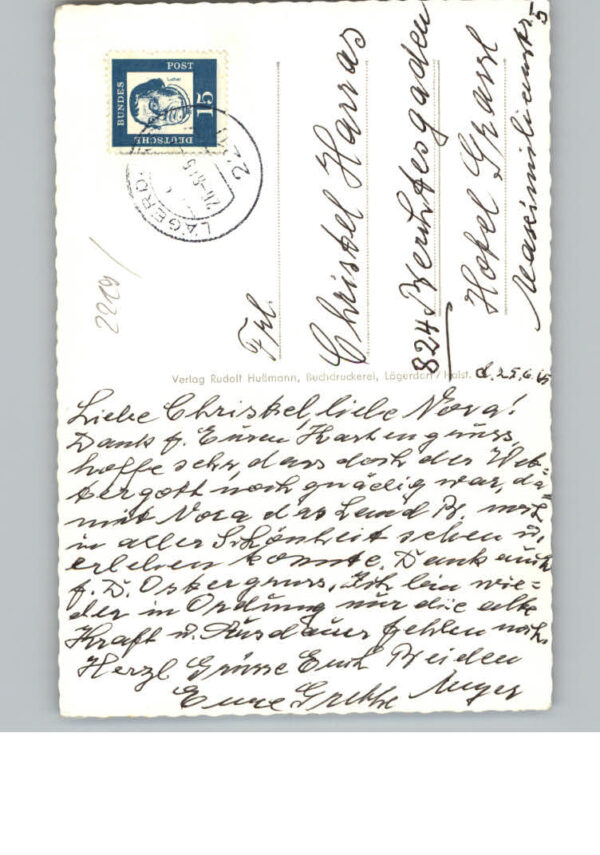 DEUTSCHE
BUNDES
POST
15
Luther
LÄGERDO
221
2219/
Frl.
Christel Harras
824 Berchtesgaden
Hotel Grassl
Maximilianstr.
5
Verlag Rudolf Hußmann, Buchdruckerei, Lägerdorf/Holst.
L. 25.6.65
Liebe Christel, liebe Nora!
Dank f. Euren Kartengruss,
hoffe sehr, dass doch der Wet-
tergott noch gnädig war, da-
mit Nora das Land B. noch
in aller Schönheit sehen u.
erleben konnte. Dank auch
f. D. Ostergruss, Ich bin wie=
der in Ordnung nur die alte
Kraft u. Ausdauer fehlen noch.
Herzl Grüsse Euch Beiden
Eure Grethe